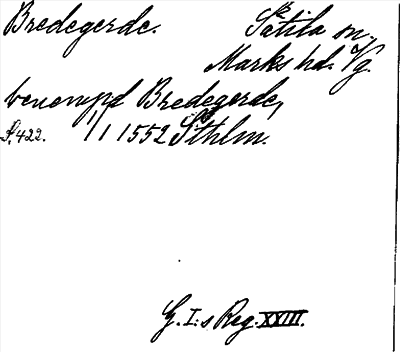 Bredegerde. Sätila sn,
Marks hd. Vg.
benempd Bredegerde,
S. 422. 1/1 1552 Sthlm.
G. I:s Reg. XXIII.